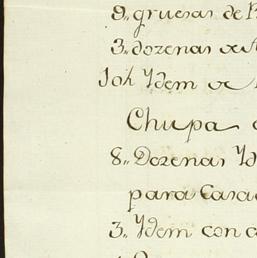 9.. gruesas de
3.. dozenas de
Idem de
Chupa
8.. Dozenas Yd
para Casa
3.. Ydem con